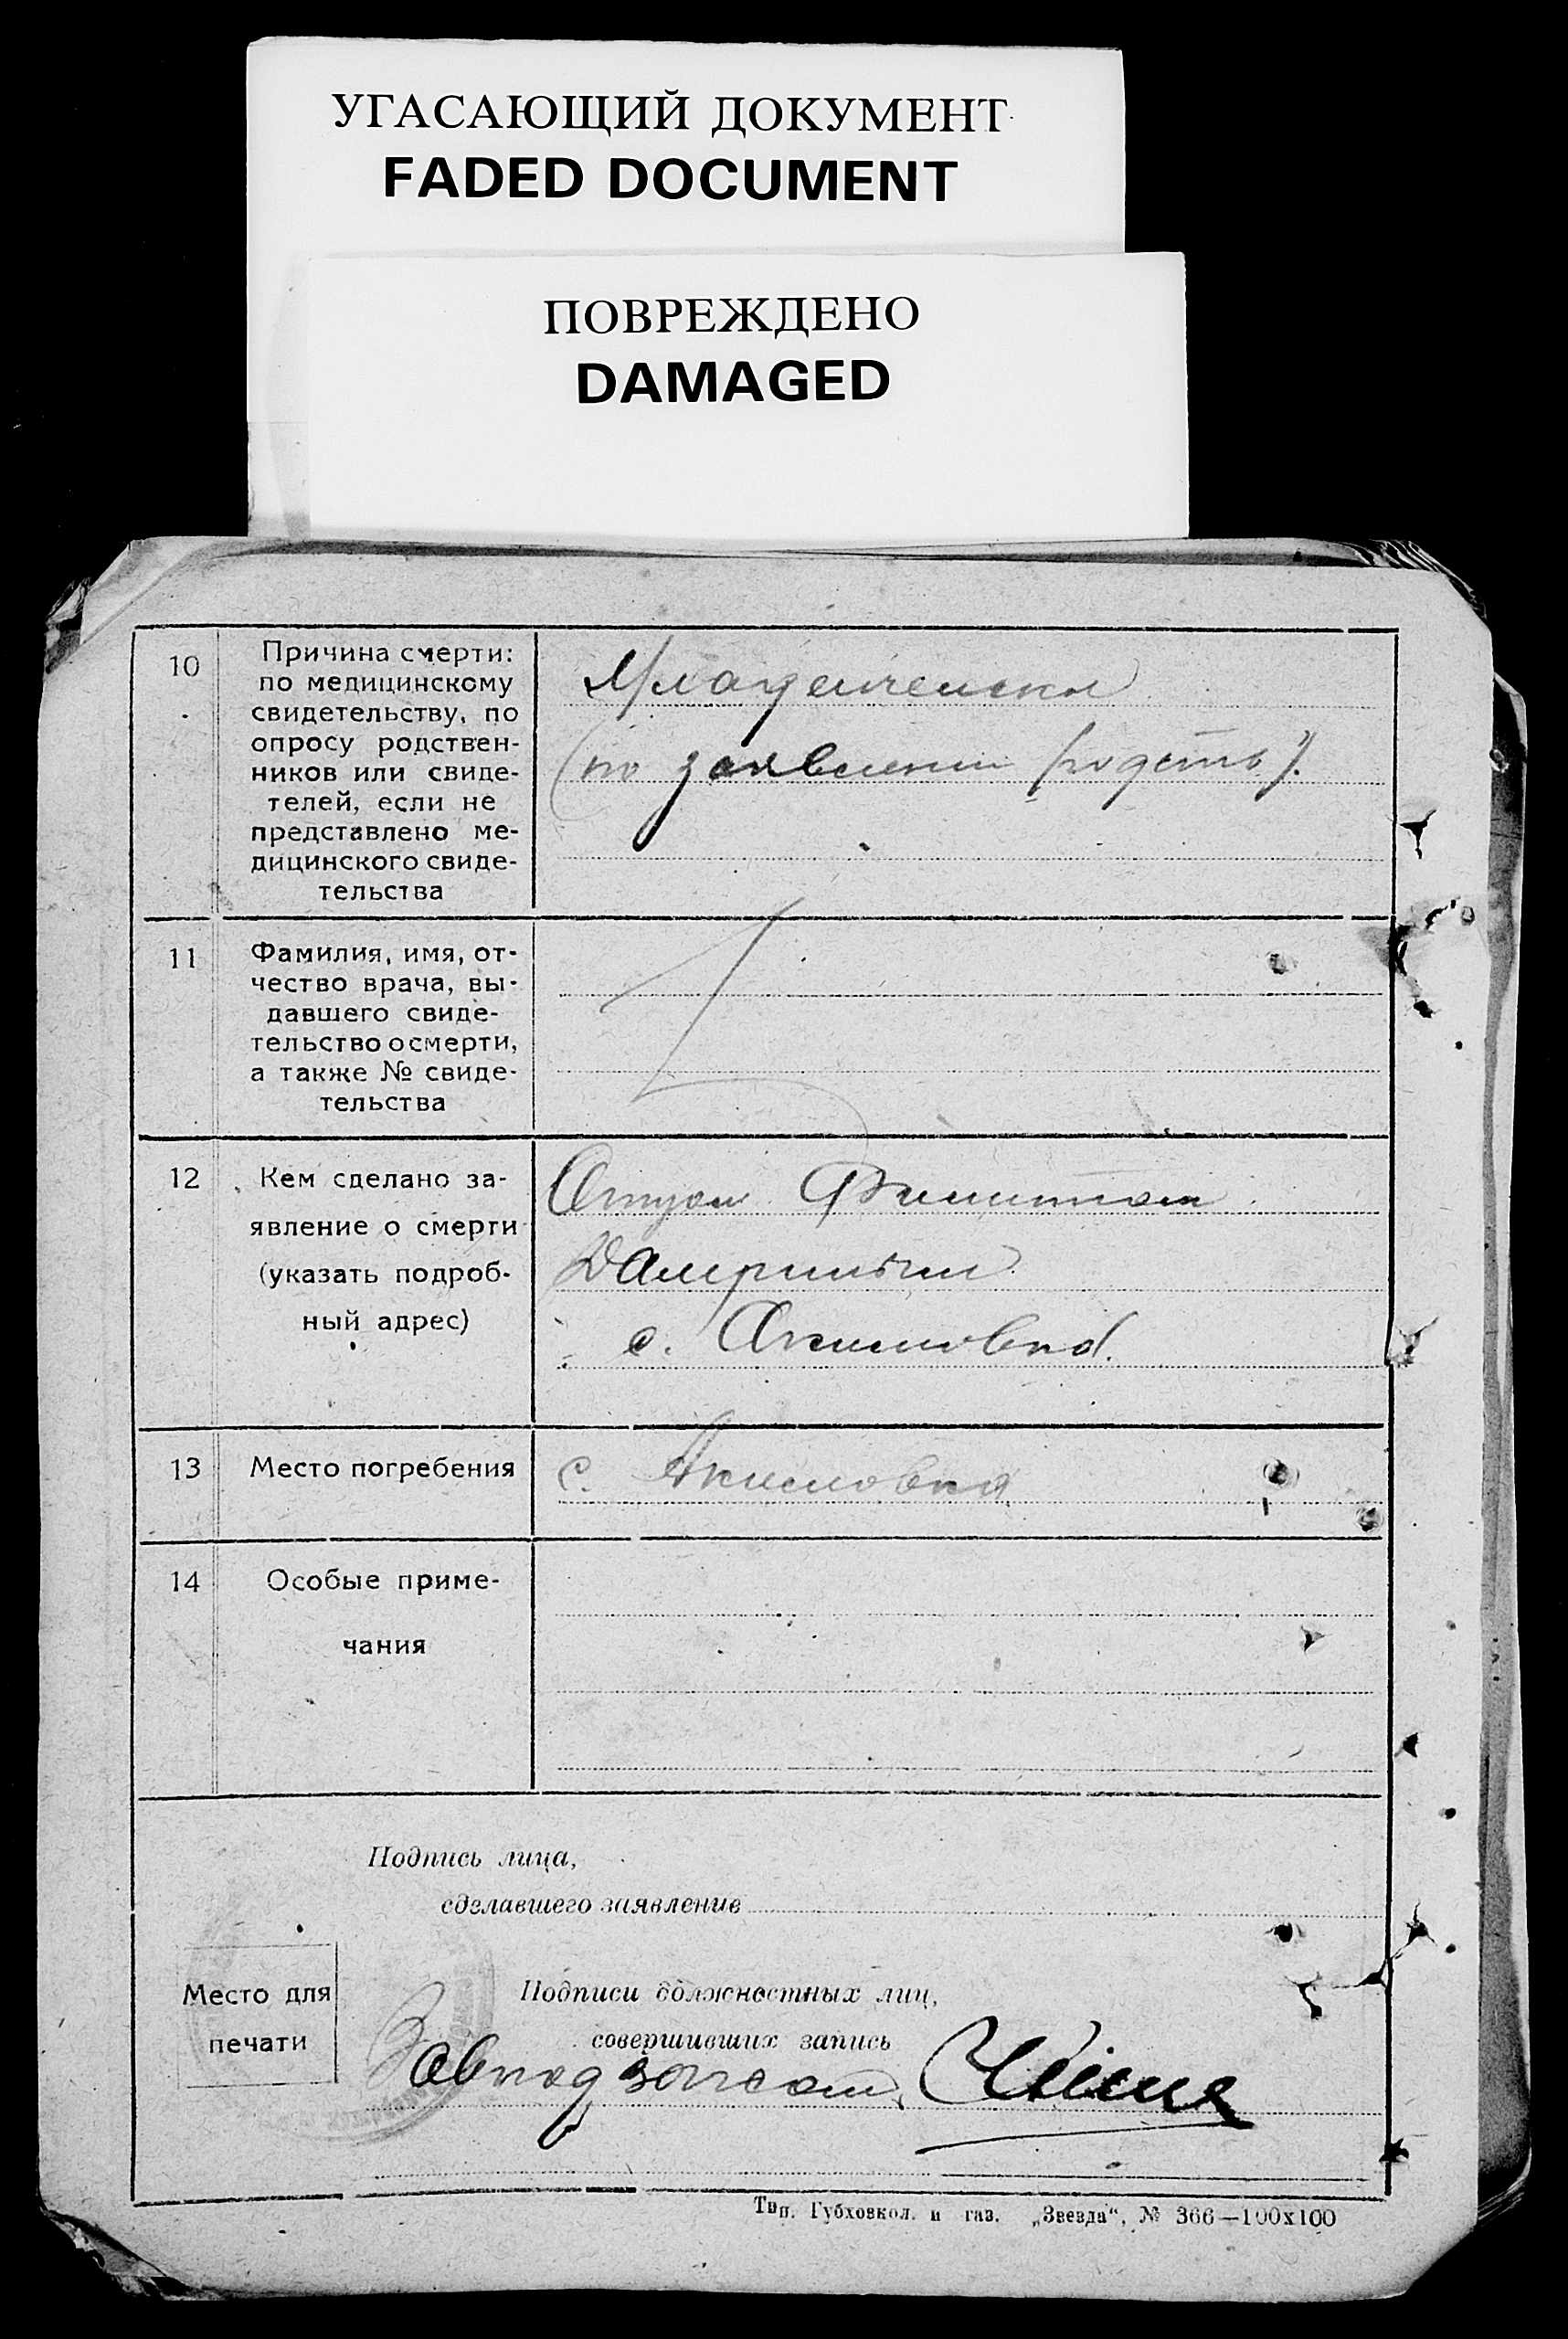 УГАСАЮЩИЙ ДОКУМЕНТ
FADED DOCUMENT
ПОВРЕЖДЕНО
DAMAGED
10
Причина смерти:
по медицинскому
свидетельству, по
опросу родствен-
ников или свиде-
телей, если не
представлено ме-
дицинского свиде-
тельства
Младенческая
(по заявлению
11
Фамилия, имя, от-
чество врача, вы-
давшего свиде-
тельство о смерти,
а также № свиде-
тельства
12
Кем сделано за-
явление о смерти
(указать подроб-
ный адрес)
Отцом
с. Акимовка
13
Место погребения
с. Акимовка
14
Особые приме-
чания
Подпись лица,
сделавшего заявление
Место для
печати
Подписи должностных лиц,
совершивших запись
Завподзагсом
Тип. Губховкол. и газ. „Звезда“, № 366—100х100